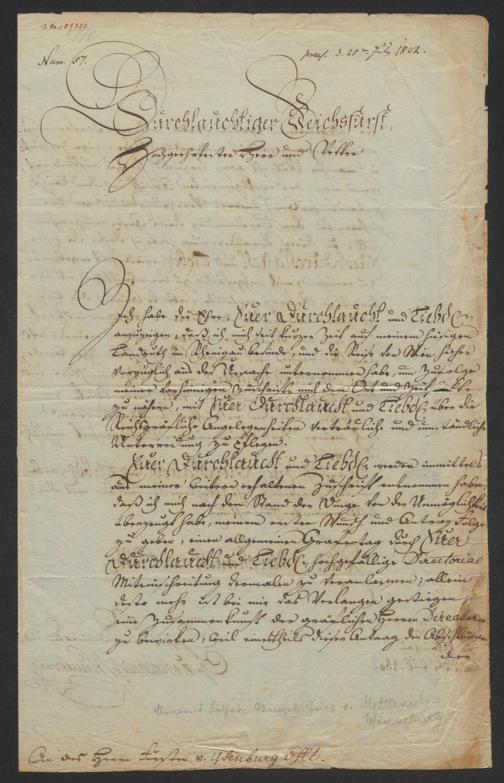 Num. 57.
praes. d. 25ten July 1802.
Durchlauchtiger Reichsfürst,
Hochgeehrtester Herr und Vetter
Ich habe die Ehre, Euer Durchlaucht und Liebd
anzuzeigen, daß ich mich seit kurzer Zeit auf meinem hiesigen
Landguth im Rheingau befinde, und die Reise von Wien hieher
vorzüglich aus der Ursache unternommen habe, um zufolge
meiner vorherigen Zuschrift mich dem Ort und
zu nähern, mit Euer Durchlaucht und Liebd über die
Reichsgräfliche Angelegenheiten vertrauliche und mündliche
Unterredung zu pflegen.
Euer Durchlaucht und Liebd werden inmittels
aus meiner erhaltenen Zuschrift entnommen haben,
daß ich mich nach dem Stand der Dinge von der Unmöglichkeit
überzeugt habe, meinem ersten Wunsch und Antrag Folge
zu geben, einen allgemeinen Grafentag durch Euer
Durchlaucht und Liebd hochgefällige Directorial
Miteinschreitung dermalen zu veranlassen; allein
desto mehr ist bei mir das Verlangen gestiegen,
eine Zusammenkunft der gräflichen Herren Directoren
zu bewirken, weil einestheils dieser Antrag den
der
Metternich-
Winneburg
An des Herrn Fürsten v. Ysenburg